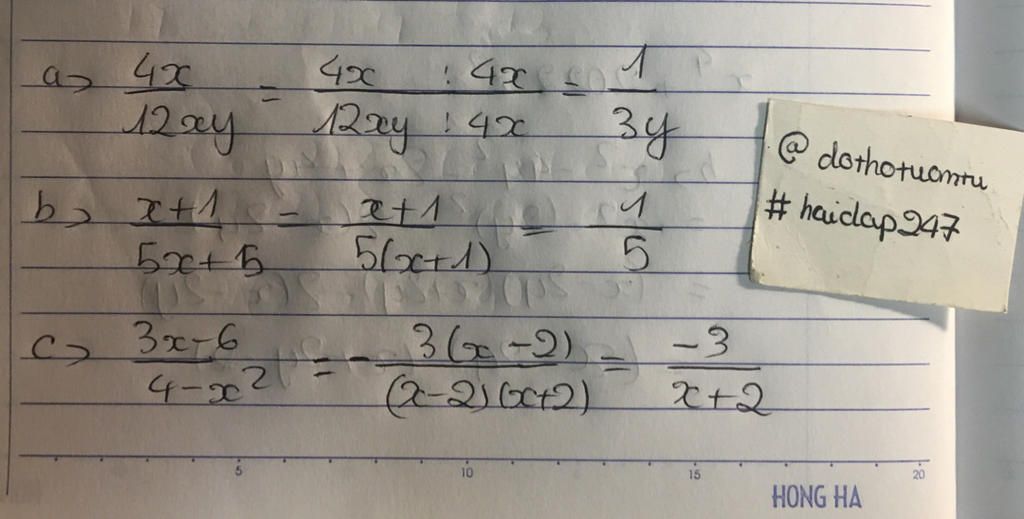 a> 4x/12xy = 4x : 4x/12xy : 4x = 1/3y
b> x+1/5x+5 = x+1/5(x+1) = 1/5
c> 3x-6/4-x² = - 3(x-2)/(x-2)(x+2) = -3/x+2
@ dothotuomtu
# haidap247
5 10 15 20
HONG HA